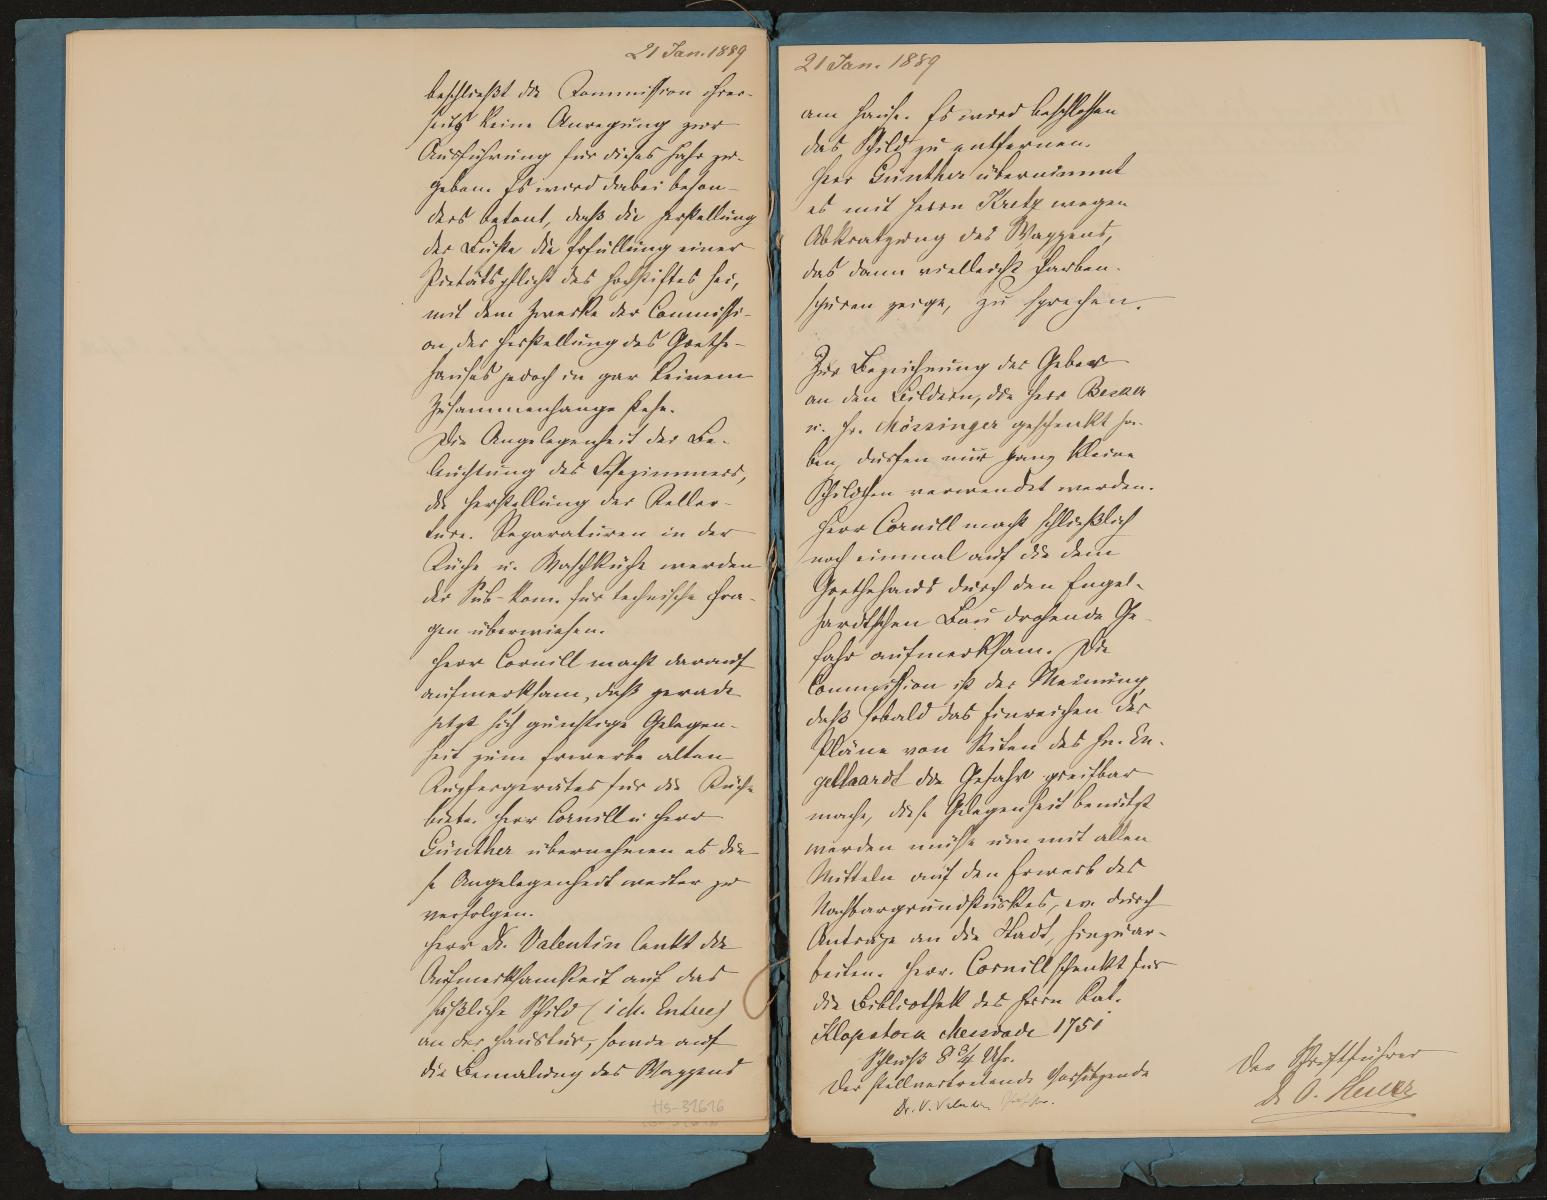 21 Jan. 1889
beschließt die Commission ihrer-
seits keine Anregung zur
Ausführung für dieses Jahr zu
geben. Es wird dabei beson-
ders betont, daß die Herstellung
der Büste die Erfüllung einer
Pietätspflicht des Hochstiftes sei,
mit dem Zwecke der Commissi-
on, der Herstellung des Goethe-
hauses jedoch in gar keinem
Zusammenhange stehe.
Die Angelegenheit der Be-
leuchtung des Lesezimmers,
die Herstellung der Keller-
türe. Reparaturen in der
Küche u. Waschküche werden
der Sub-Kom. für technische Fra-
gen überwiesen.
Herr Cornill macht darauf
aufmerksam, daß gerade
jetzt sich günstige Gelegen-
heit zum Erwerbe alten
Kupfergerätes für die Küche
biete. Herr Cornill u Herr
Günther übernehmen es die-
se Angelegenheit weiter zu
verfolgen.
Herr Dr. Valentin lenkt die
Aufmerksamkeit auf das
häßliche Schild (1 M. Entree)
an der Haustür, sowie auf
die Bemalung des Wappens
Hs-31616
21 Jan. 1889
am Hause. Es wird beschlossen
das Schild zu entfernen.
Herr Günther übernimmt
es mit Herrn wegen
Abkratzung des Wappens,
das dann vielleicht Farben-
spuren zeige, zu sprechen.
Zur Bezeichnung der Geber
an den Bildern, die Herr Becker
u. Hr. Mössinger geschenkt ha-
ben, dürfen nur ganz kleine
Schildchen verwendet werden.
Herr Cornill macht schließlich
noch einmal auf die dem
Goethehaus durch den Engel-
hardtschen Bau drohende Ge-
fahr aufmerksam. Die
Commission ist der Meinung
daß sobald das Einreichen der
Pläne von Seiten des Hn. En-
gelhardt die Gefahr greifbar
mache, diese Gelegenheit benutzt
werden müsse um mit allen
Mitteln auf den Erwerb des
Nachbargrundstückes, ev. durch
Anträge an die Stadt, hinzuar-
beiten. Herr Cornill schenkt für
die Bibliothek des Herrn Rat.
Klopstock Messiade 1751
Schluß 8 3/4 Uhr.
Der stellvertretende Vorsitzende
Dr. V. Valentin
Der Schriftführer
Dr O. Heuer